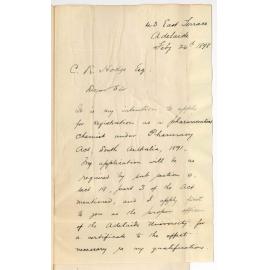 43 East Terrace
Adelaide
Feby 26th 1898
C. R. Hodge Esq
Dear Sir
It is my intention to apply
for registration as a pharmaceutical
chemist under Pharmacy
Act, South Australia, 1891.
My application will be as
required by sub section
sect 18, part 3 of the Act
mentioned, and I apply first
to you as the proper officer
of the Adelaide University for
a certificate to the effect
necessary as my qualifications